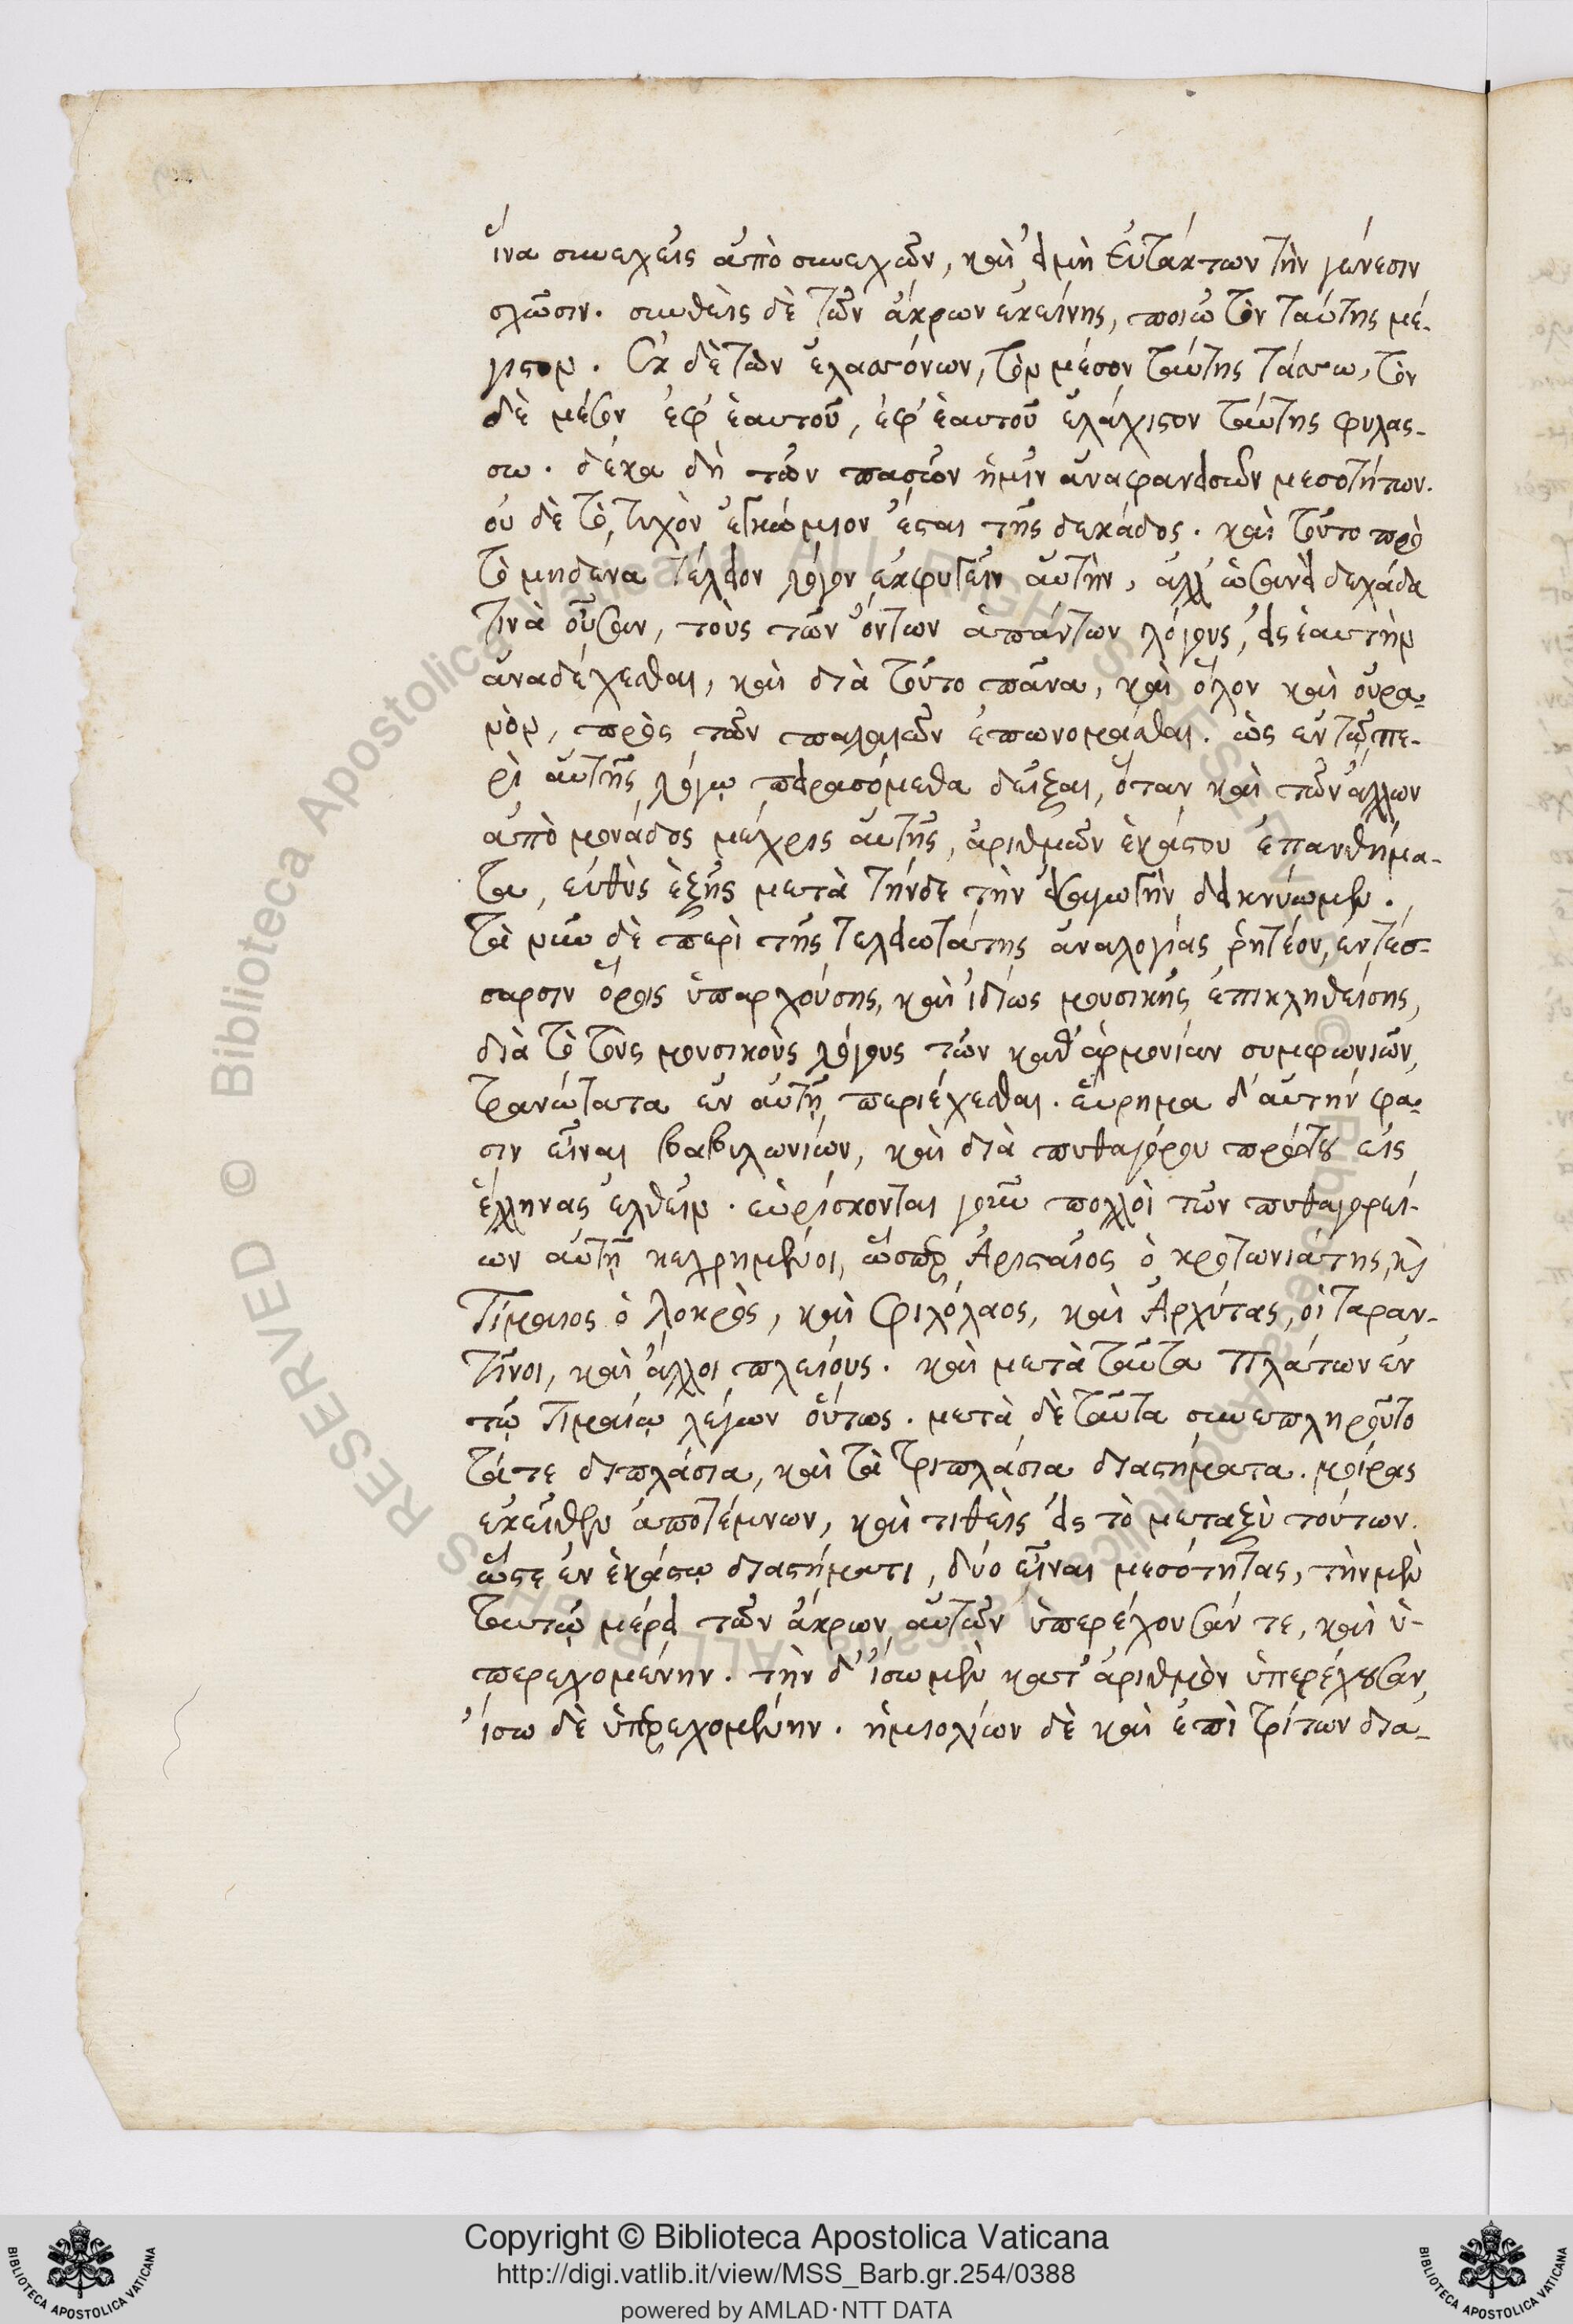 ἵνα συνεχεῖς ἀπὸ συνεχῶν, καὶ εἰ μὴ εὐτάκτων τὴν γένεσιν
σχῶσιν. συνθεὶς δὲ τῶν ἄκρων ἐκείνης, ποιῶ τὸν ταύτης μέ-
γιστον. ἐκ δὲ τῶν ἐλαττόνων, τὸν μέσον ταύτης τάττω, τὸν
δὲ μέσον ἐφ' ἑαυτοῦ, ἐφ' ἑαυτοῦ ἐλάχιστον ταύτης φυλάσ-
σω. δέκα δὴ τῶν πασῶν ἡμῖν ἀναφανεισῶν μεσοτήτων.
οὐ δὲ τὸ τυχὸν ἐγκώμιον ἔσται τῆς δεκάδος. καὶ τοῦτο πρὸ
τὸ μηδένα τέλειον λόγον ἐκφυγεῖν αὐτὴν, ἀλλ' ὡσανεὶ δεχάδα
τινὰ οὖσαν, τοὺς τῶν ὄντων ἁπάντων λόγους, εἰς ἑαυτὴν
ἀναδέχεσθαι, καὶ διὰ τοῦτο πᾶνα, καὶ ὅλον καὶ οὐρα-
νὸν, πρὸς τῶν παλαιῶν ἐπωνομάσθαι. ὡς ἐν τῷ πε-
ρὶ αὐτῆς λόγῳ πειρασόμεθα δεῖξαι, ὅταν καὶ τῶν ἄλλων
ἀπὸ μονάδος μέχρις αὐτῆς, ἀριθμῶν ἑκάστου ἐπανθήμα-
τα, εὐθὺς ἑξῆς μετὰ τήνδε τὴν εἰσαγωγὴν δεικνύωμεν.
τὰ νῦν δὲ περὶ τῆς τελειωτάτης ἀναλογίας ῥητέον, ἐν τέσ-
σαρσιν ὅροις ὑπαρχούσης, καὶ ἰδίως μουσικῆς ἐπικληθείσης,
διὰ τὸ τοὺς μουσικοὺς λόγους τῶν καθ' ἁρμονίαν συμφωνιῶν,
τρανώτατα ἐν αὐτῇ περιέχεσθαι. εὕρημα δ' αὐτήν φα-
σιν εἶναι βαβυλωνίων, καὶ διὰ πυθαγόρου πρώτου εἰς
ἕλληνας ἐλθεῖν. εὑρίσκονται γοῦν πολλοὶ τῶν πυθαγορεί-
ων αὐτῇ κεχρημένοι, ὥσπερ Ἀρισταῖος ὁ κροτωνιάτης, καὶ
Τίμαιος ὁ λοκρὸς, καὶ Φιλόλαος, καὶ Ἀρχύτας, οἱ ταραν-
τῖνοι, καὶ ἄλλοι πλείους. καὶ μετὰ ταῦτα Πλάτων ἐν
τῷ Τιμαίῳ λέγων οὕτως. μετὰ δὲ ταῦτα συνεπληροῦτο
τά τε διπλάσια, καὶ τὰ τριπλάσια διαστήματα. μοίρας
ἐκεῖθεν ἀποτέμνων, καὶ τιθεὶς εἰς τὸ μεταξὺ τούτων.
ὥστε ἐν ἑκάστῳ διαστήματι, δύο εἶναι μεσότητας, τὴν μὲν
ταυτῷ μέρει τῶν ἄκρων αὐτῶν ὑπερέχουσάν τε, καὶ ὑ-
περεχομένην. τὴν δ' ἴσω μὲν κατ' ἀριθμὸν ὑπερέχουσαν,
ἴσω δὲ ὑπερεχομένην. ἡμιολίων δὲ καὶ ἐπὶ τρίτων δια-
Copyright © Biblioteca Apostolica Vaticana
http://digi.vatlib.it/view/MSS_Barb.gr.254/0388
powered by AMLAD·NTT DATA